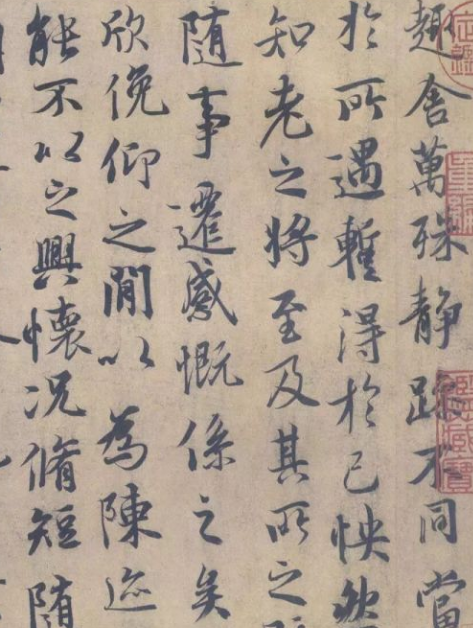 趣舍萬殊静躁不同當
於所遇暫得於己怏然
知老之將至及其所之
随事遷感慨係之矣
欣俛仰之閒以為陳迹
能不以之興懷况脩短随